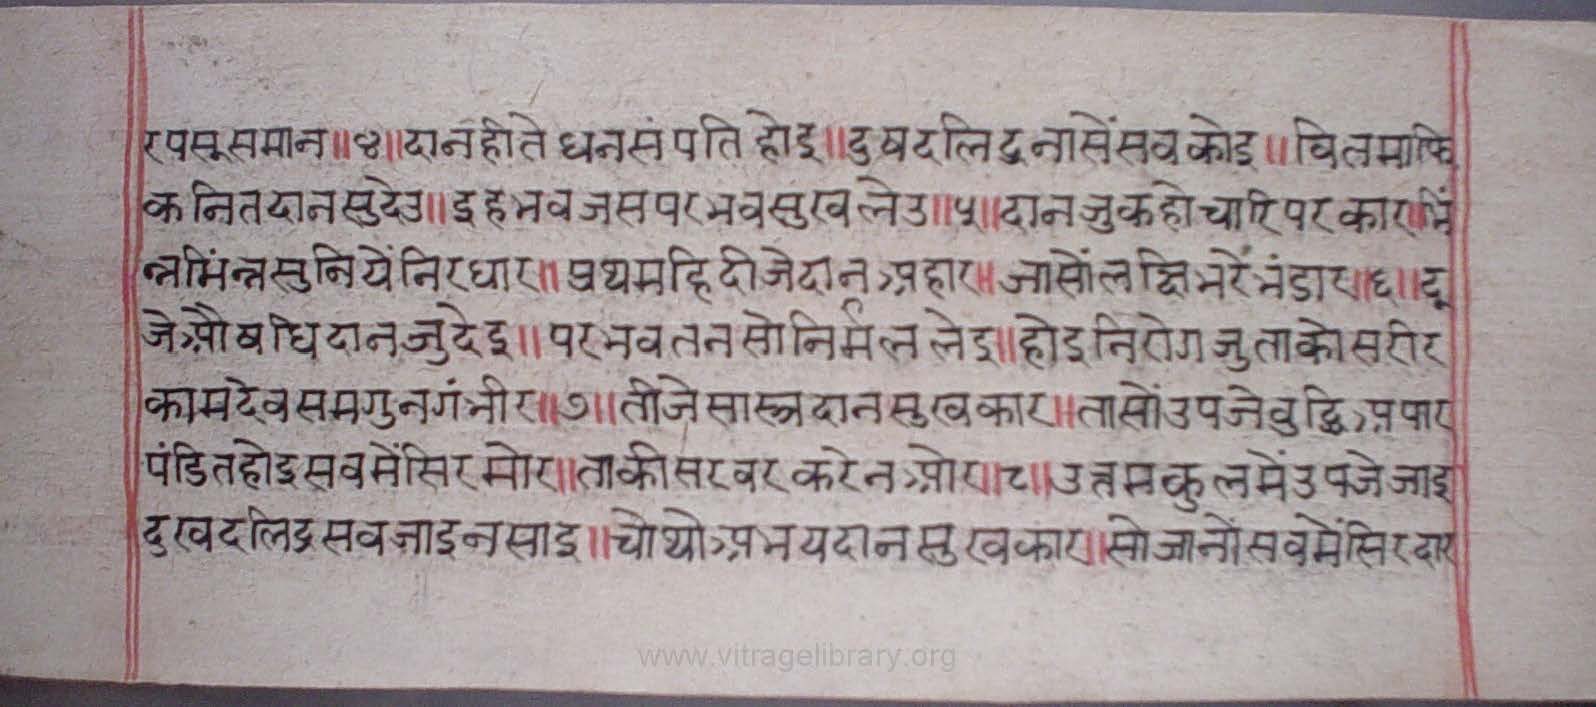 रपसूसमान॥४॥दानहीते धनसंपति होइ॥दुषदलिद्रनासेंसवकोइ॥वितमाफि
कनितदानसुदेउ॥इहभवजसपरभवसुखलेउ॥५॥दानजुकहोचारिपरकार॥भिं
न्नभिंन्नसुनियेंनिरधार॥प्रथमहिदीजेदानअहार॥जासोंलछिभरेंभंडार॥६॥दू
जेऔषधिदानजुदेइ॥परभवतनसोनिर्मललेइ॥होइनिरोगजुताकोसरीर
कामदेवसमगुनगंभीर॥७॥तीजेसास्त्रदानसुखकार॥तासोंउपजेवुद्धिअपार
पंडितहोइसवमेंसिरमोर॥ताकीसरवरकरेनओर॥८॥उत्तमकुलमेंउपजेजाइ
दुखदलिद्रसवजाइनसाइ॥चोथोअभयदानसुखकार॥सोजानोंसवमेंसिरदार
www.vitragelibrary.org